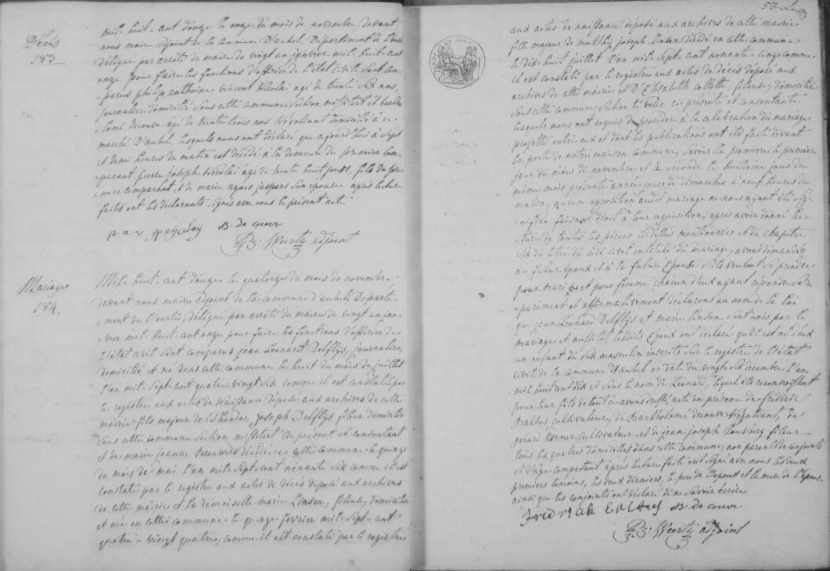 Décès
183.
mil huit cent onze, le onze du mois de novembre, devant
nous maire adjoint de la commune d'aubel, Département de l'ourte
délégué par arrêté du maire du vingt un janvier mil huit cent
onze pour faire les fonctions d'officier de l'état civil sont com-
parus
agé de trente six ans,
journalier domicilié sous cette commune
agé de trente trois ans domicilié à ce
marché d'aubel, lesquels nous ont déclaré que aujourd'hui à sept
et demi heures du matin est décédé à la demeure du premier com-
parant pierre joseph nicolai âgé de trente huit jours, fils du pre-
mier comparant, et de marie agnès son épouse après lecture
faite ont les déclarants signé avec nous le présent acte.
B: De couve
P: Weertz adjoint
Mariage
184.
Mil huit cent onze le quatorze du mois de novembre
devant nous maire adjoint de la commune d'aubel Départe-
ment de l'ourte, délégué par arrêté du maire du vingt un jan-
vier mil huit cent onze pour faire les fonctions d'officier de
l'état civil sont comparus jean Léonard Delflys, journalier,
domicilié et né sous cette commune le huit du mois de juillet
l'an mil sept cent quatre vingt six comme il est constaté par
le registre aux actes de naissance déposé aux archives de cette
mairie fils majeur de joseph Delflys fileur domicilié
sous cette commune section ici présent et consentant
et de marie jeanne décédée en cette commune le quinze
du mois de mai l'an mil sept cent nonante six comme il est
constaté par le registre aux actes de décès déposé aux archives
de cette mairie et la demoiselle marie Linsen, fileuse, domiciliée
et née en cette commune le quinze février mil sept cent
quatre vingt quatre, comme il est constaté par le registre
57
aux actes de naissance déposé aux archives de cette mairie
fille majeure de mathieu joseph Linsen décédé en cette commune
le dix huit juillet l'an mil sept cent nonante cinq comme
il est constaté par le registre aux actes de décès déposé aux
archives de cette mairie et d'Elisabeth fileuse, domiciliée
sous cette commune section ici présente et consentante
lesquels nous ont requis de procéder à la célébration du mariage
projetté entre eux et dont les publications ont été faites devant
la porte de notre maison commune, savoir la première le premier
jour du mois de novembre et la seconde le huitième jour du
même mois présente année jours de dimanches à neuf heures du
matin, qu'aucune opposition audit mariage ne nous ayant été si-
gnifiée faisant droit à leur réquisition, après avoir donné lec-
ture de toutes les pièces ci dessus mentionnées et du chapitre
six du titre du code civil intitulé du mariage, avons demandé
au futur époux et à la future épouse s'ils veulent se prendre
pour mari et pour femme chacun d'eux ayant répondu sé-
parément et affirmativement déclarons au nom de la loi
que jean Léonard Delflys et marie Linsen sont unis par le
mariage et aussitôt lesdits époux ont déclaré qu'il est né d'eux
un enfant du sexe masculin inscrit sur le registre de l'état
civil de la commune d'aubel en date du vingt décembre l'an
mil huit cent dix et sous le nom de Léonard, lequel ils reconnoissent
pour leur fils de tout ce avons dressé acte en présence de fréderic
Baltus cultivateur, de Bartholomé decouve négotiant, de
gerard cultivateur et de jean joseph fileur
tous les quatre domiciliés dans cette commune, non parents des conjoints
et d'age compétent après lecture faite ont signé avec nous les deux
premiers témoins, les deux derniers, le père de l'époux et la mère de l'épouse
ainsi que les conjoints ont déclaré ne savoir écrire
B: De couve
P: Weertz adjoint